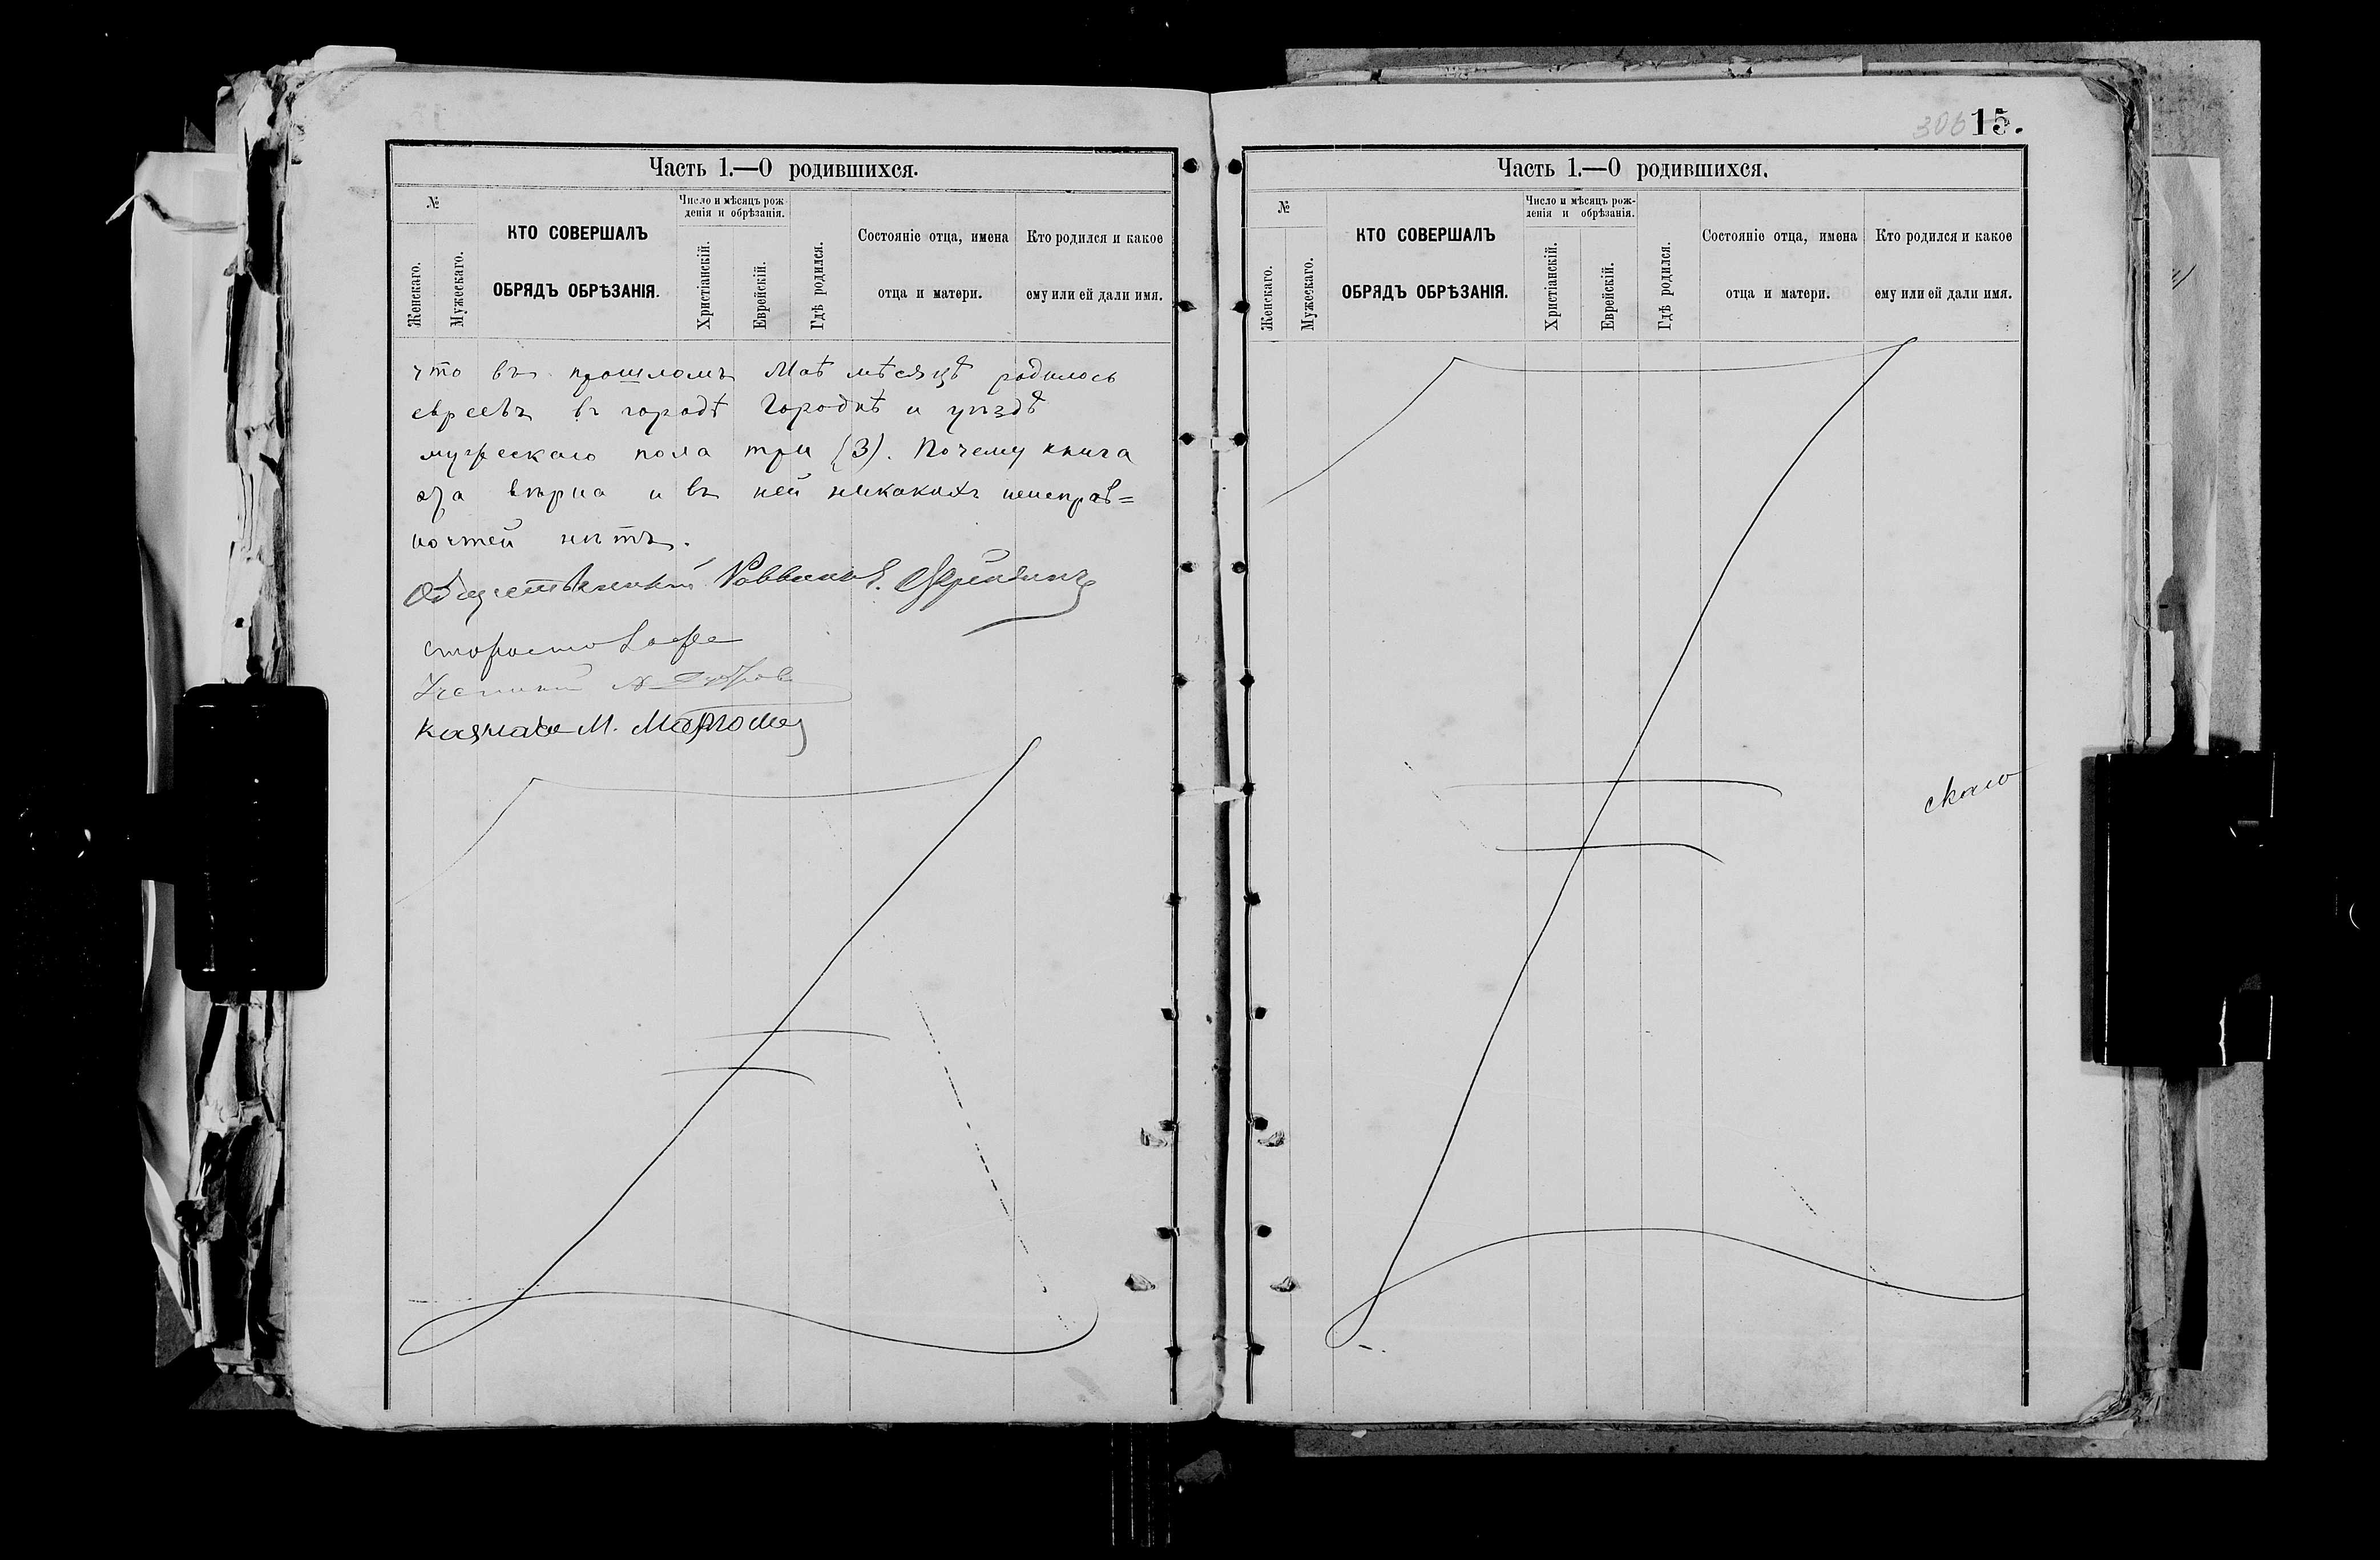 Часть 1.—О родившихся.
№
Женскаго.
Мужескаго.
КТО СОВЕРШАЛЪ
ОБРЯДЪ ОБРѢЗАНІЯ.
Число и мѣсяцъ рож
денія и обрѣзанія.
Христіанскій.
Еврейскій.
Гдѣ родился.
Состояніе отца, имена
отца и матери.
Кто родился и какое
ему или ей дали имя.
что въ прошломъ Маѣ мѣсяцѣ родилось
евреевъ въ городѣ Городнѣ и уѣздѣ
мужескаго пола три (3). Почему книга
эта вѣрна и въ ней никакихъ неисправ=
ностей нѣтъ.
Общественный Раввинъ
Староста
Ученый
Казначе М.
306 15.
Часть 1.—О родившихся.
№
Женскаго.
Мужескаго.
КТО СОВЕРШАЛЪ
ОБРЯДЪ ОБРѢЗАНІЯ.
Число и мѣсяцъ рож-
денія и обрѣзанія.
Христіанскій.
Еврейскій.
Гдѣ родился.
Состояніе отца, имена
отца и матери.
Кто родился и какое
ему или ей дали имя.
скаго